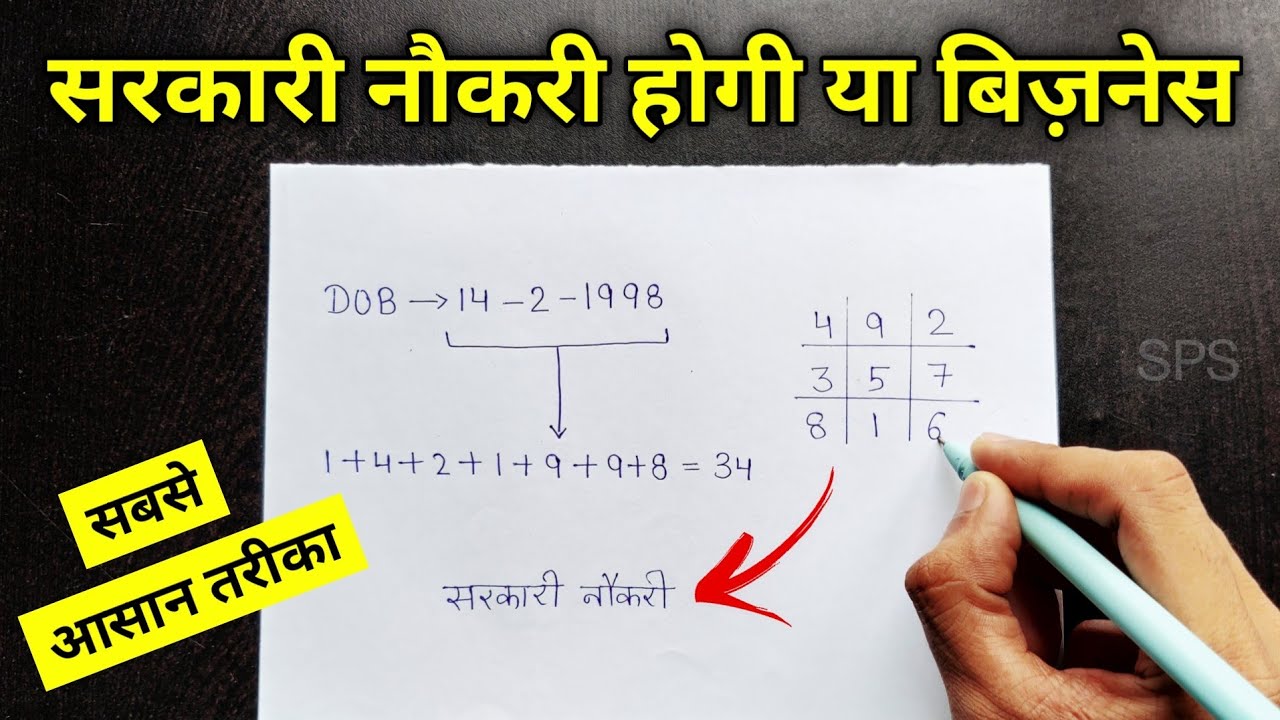 सरकारी नौकरी होगी या बिज़नेस
DOB → 14 - 2 - 1998
4 9 2
3 5 7
8 1 6
SPS
1+4+2+1+9+9+8 = 34
सबसे
आसान तरीका
सरकारी नौकरी